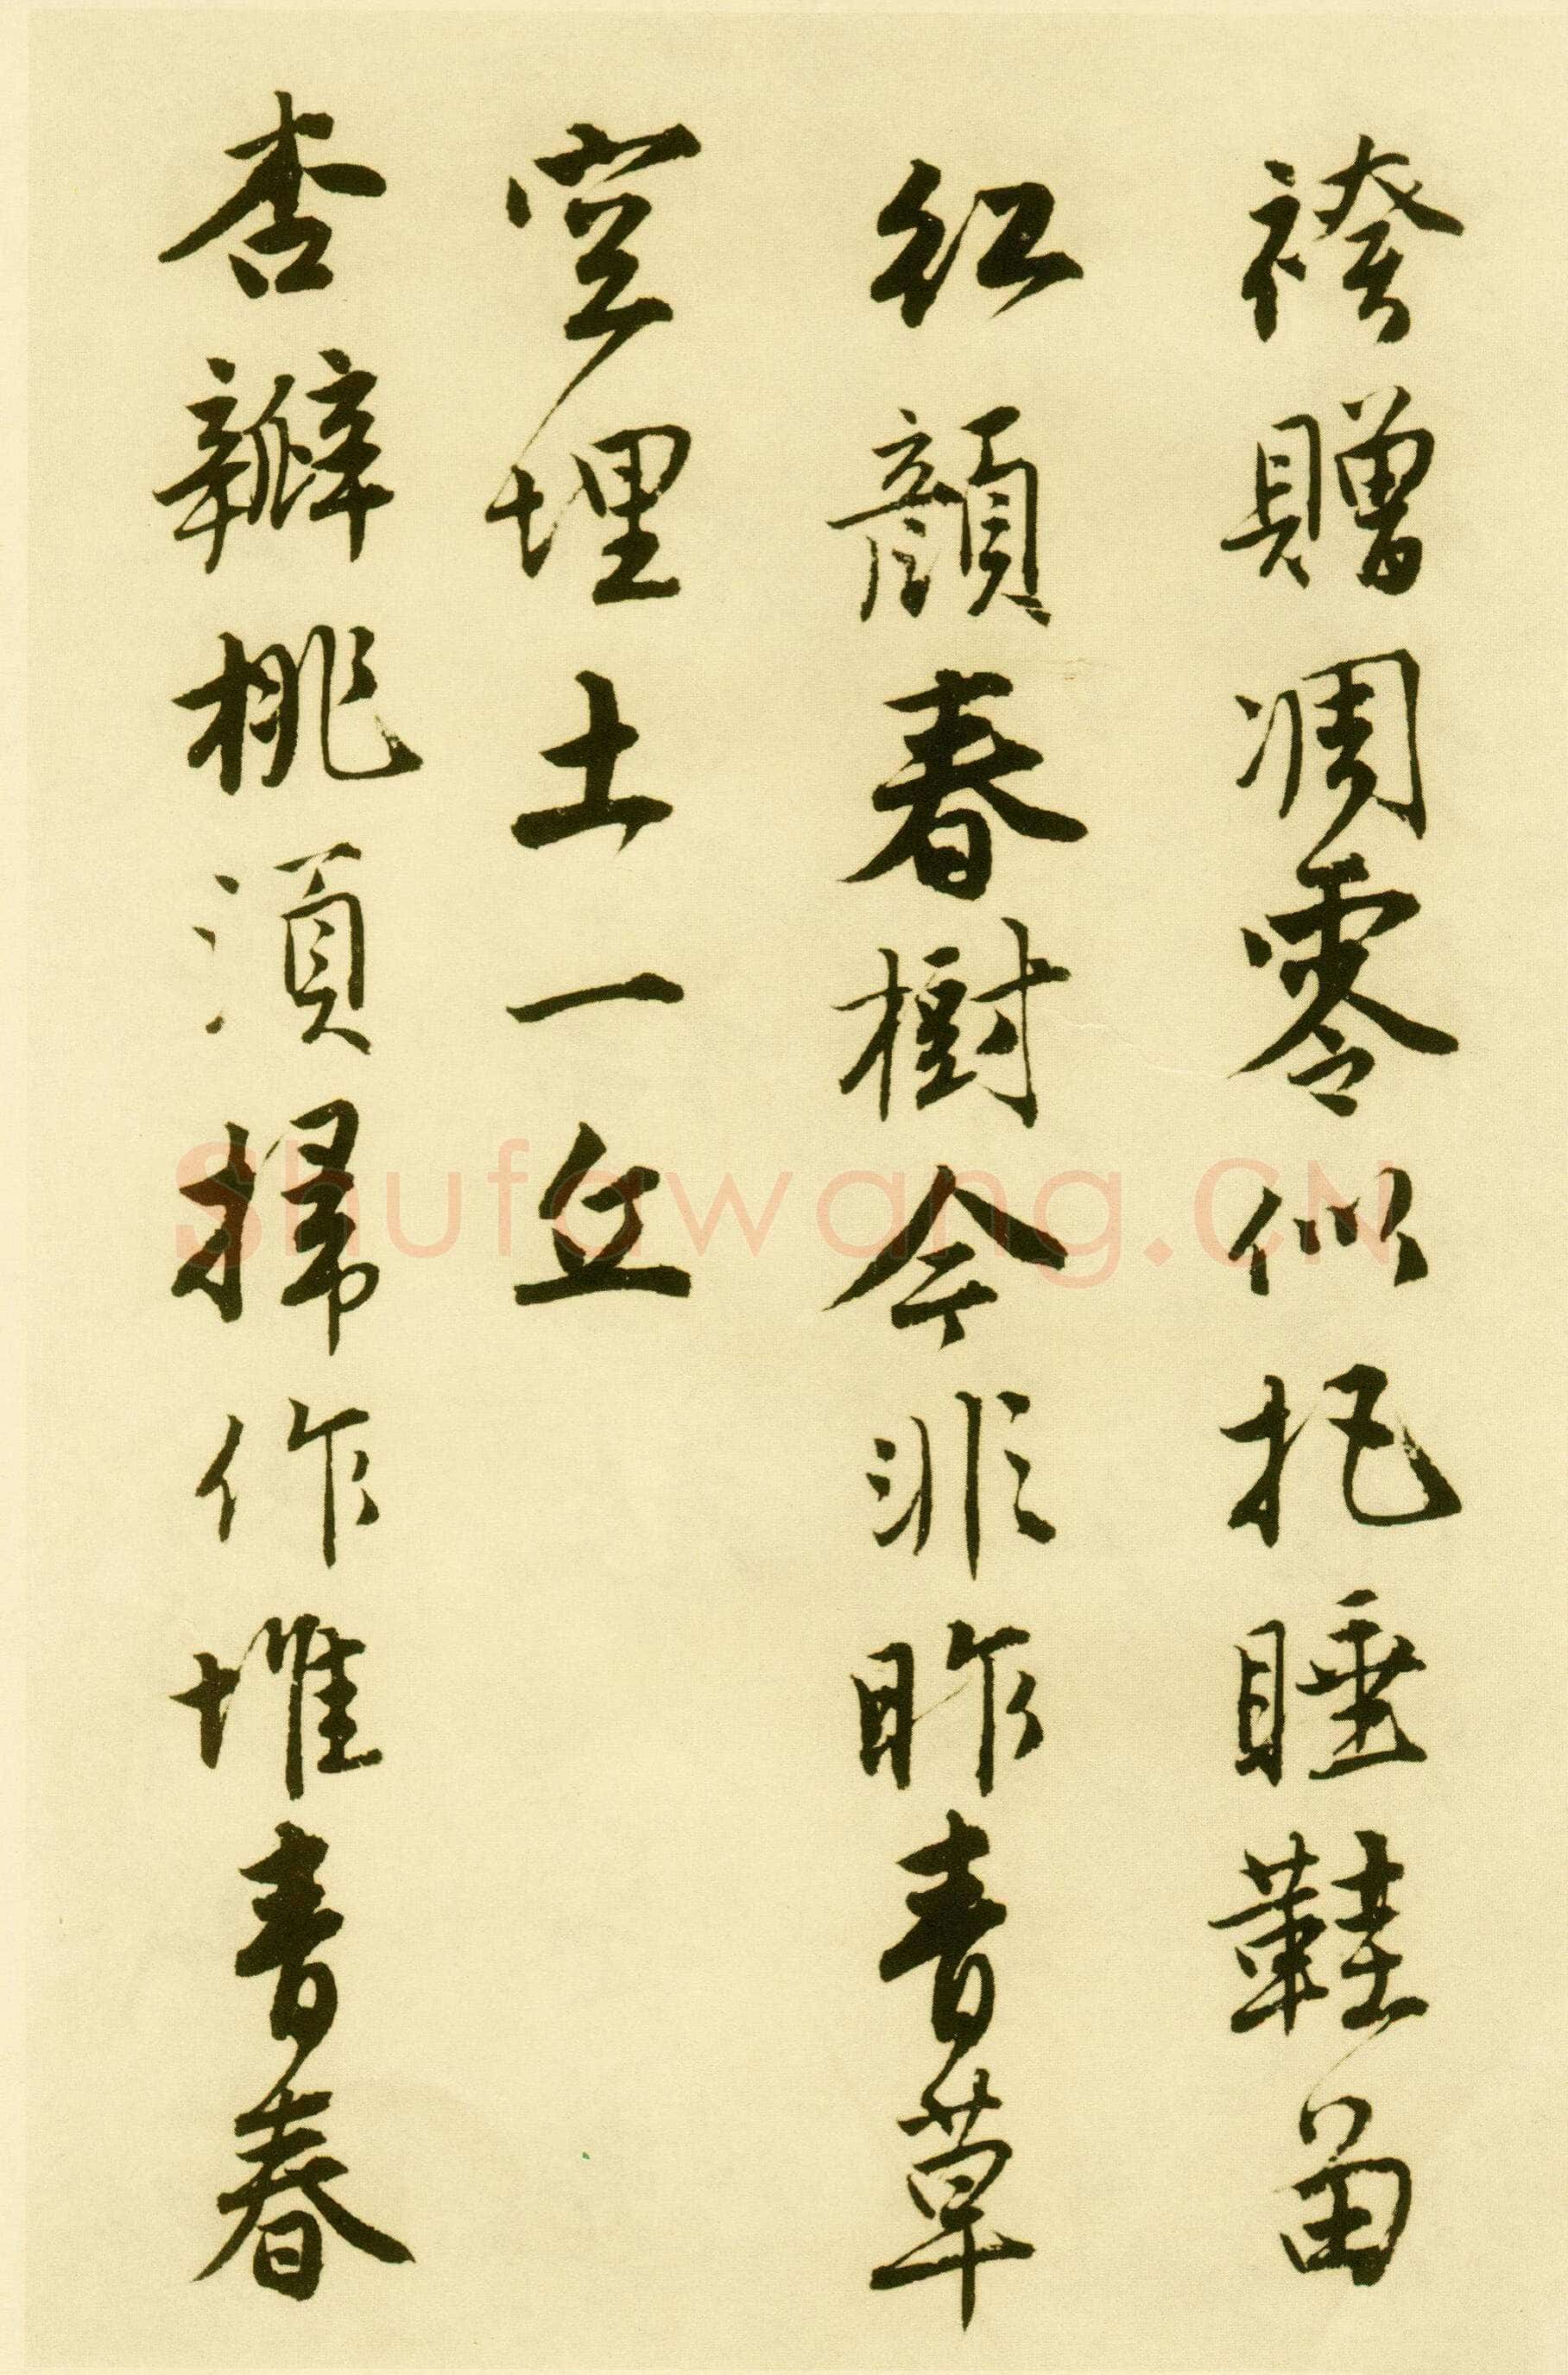 袴贈凋零似把睡鞋留
紅顏春樹今非昨青草
空埋土一丘
杏瓣桃須掃作堆青春
Shufawang.CN